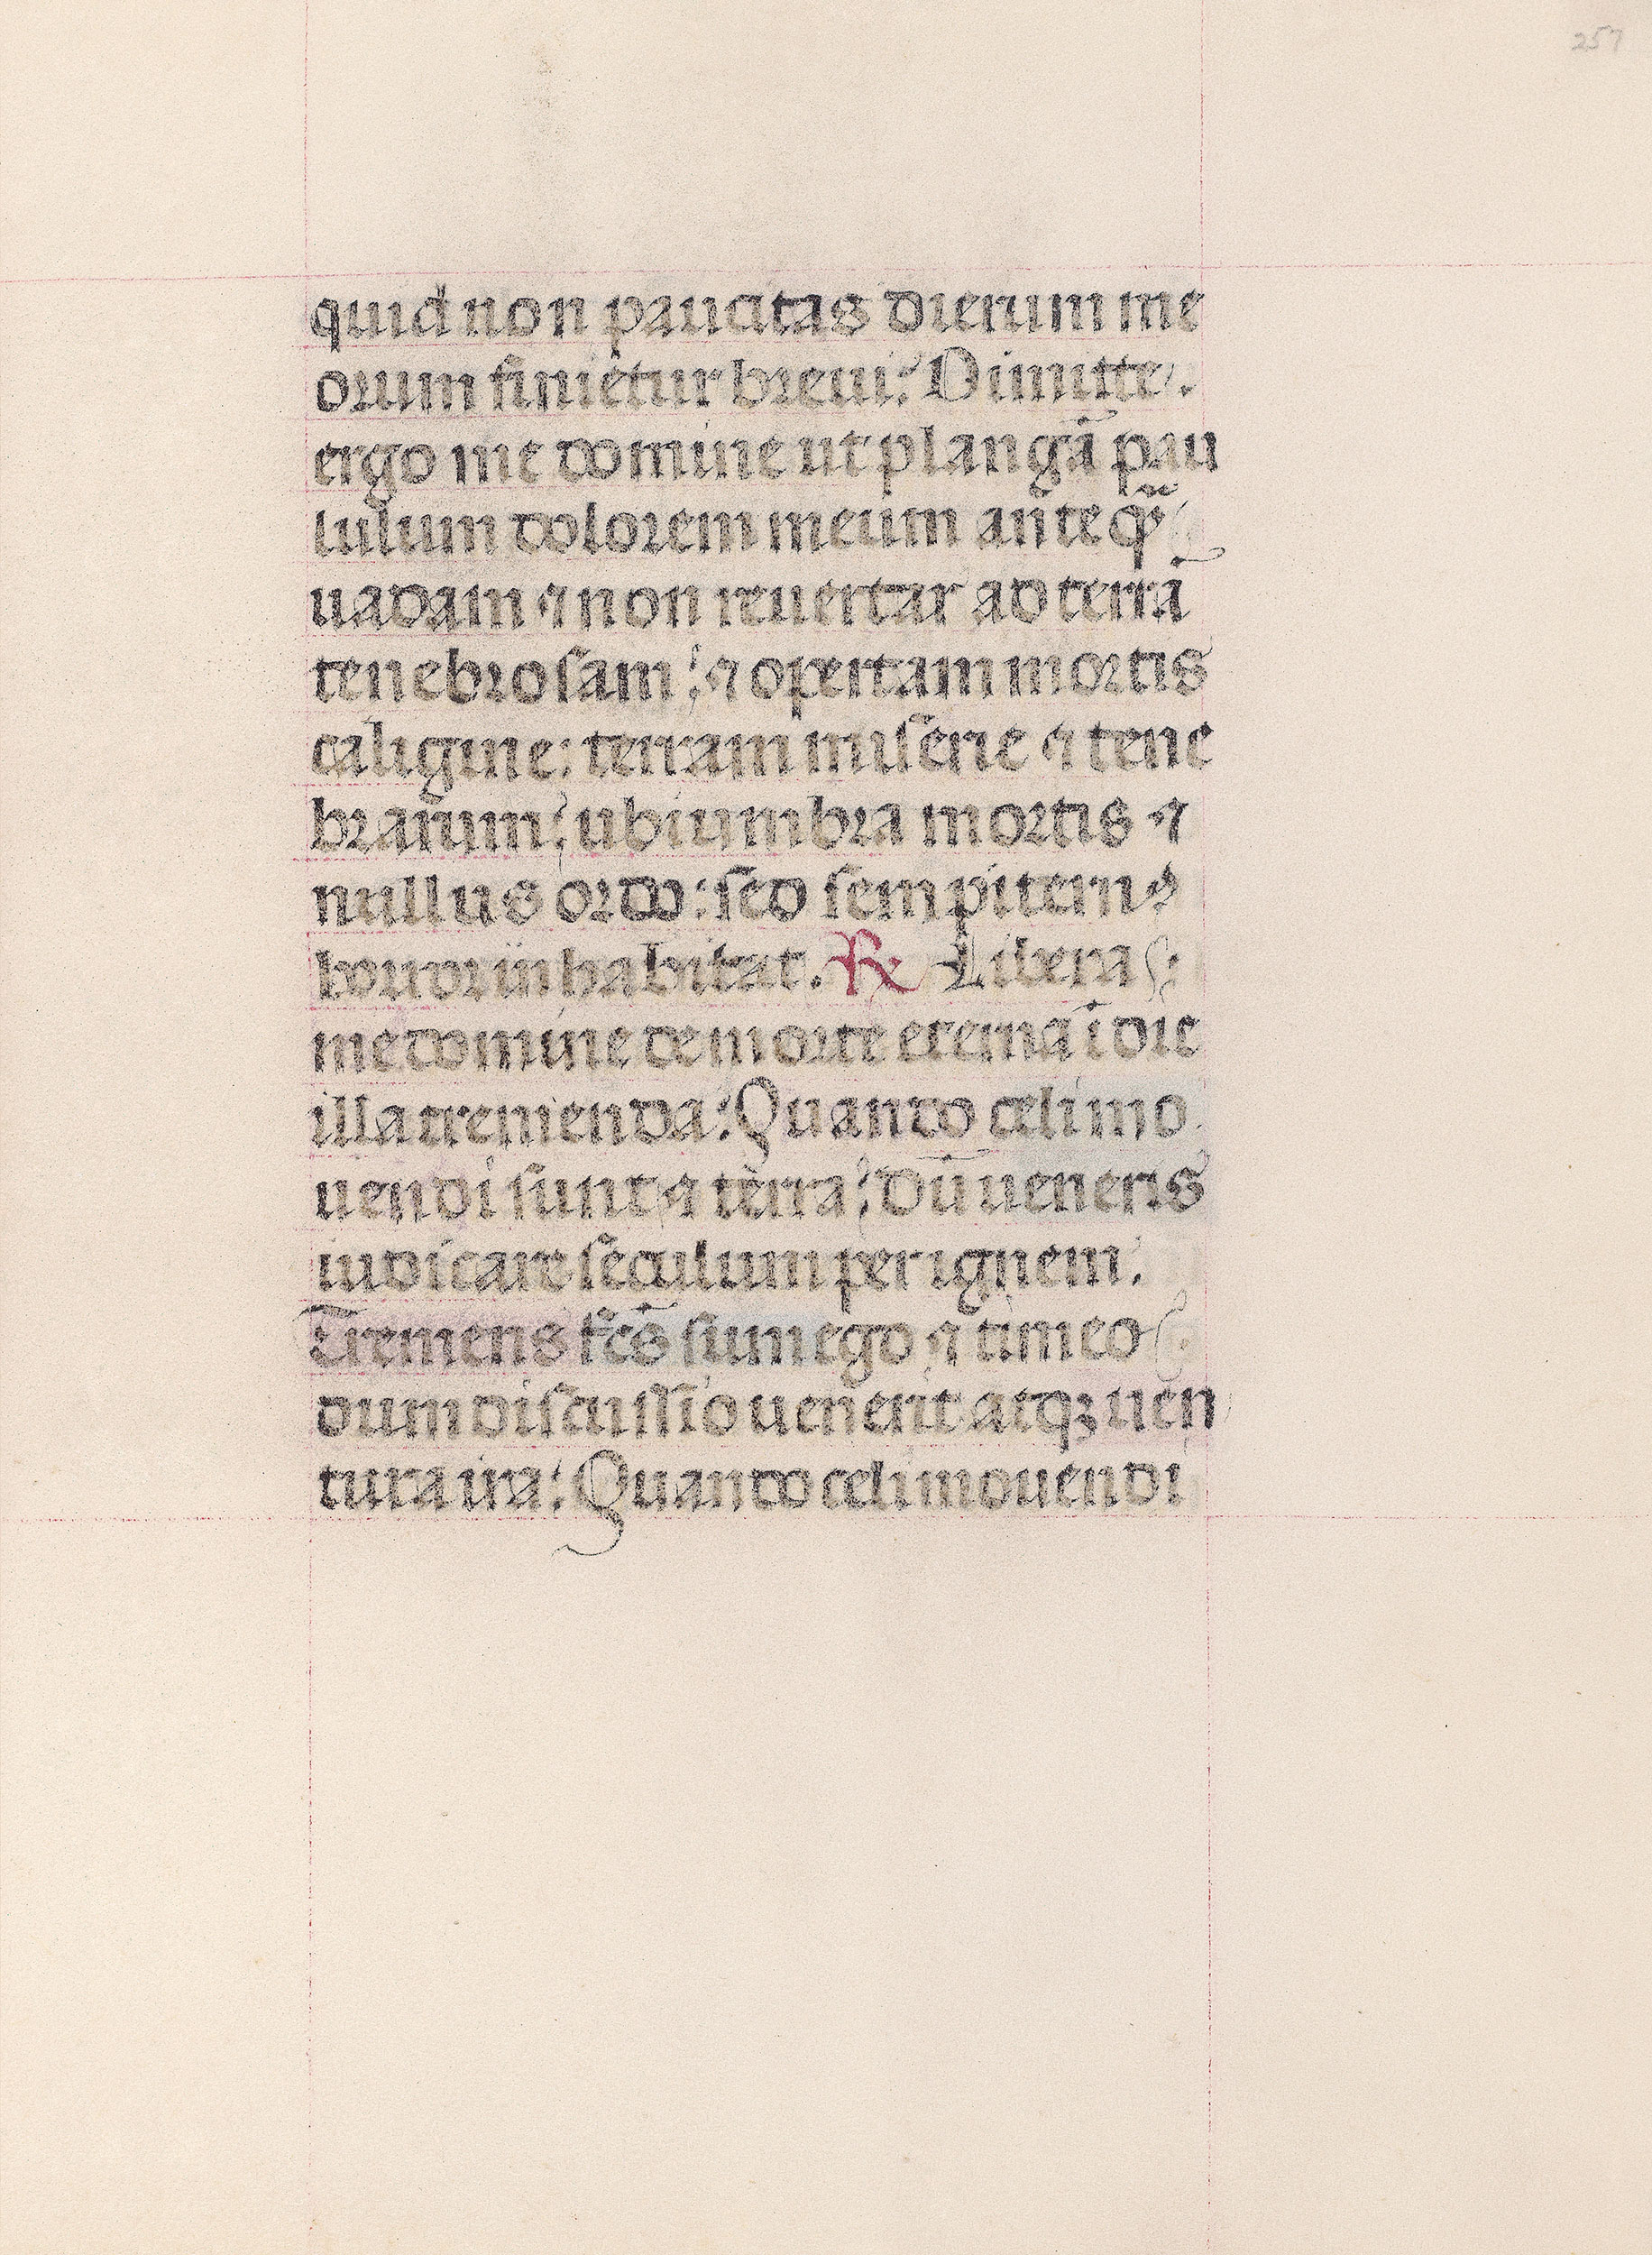 257
quid non paucitas dierum me
orum finietur breui: Dimitte.
ergo me domine ut plangā pau
lulum dolorem meum anteq̄
uadam ⁊ non reuertar ad terrā
tenebrosam: ⁊ opertam mortis
caligine: terram miserie ⁊ tene
brarum: ubi umbra mortis ⁊
nullus ordo: sed sempiternꝰ
horror inhabitat. ℞ Libera
me domine de morte eterna ī die
illa tremenda: Quando celi mo
uendi sunt ⁊ terra: Dū ueneris
iudicare seculum per ignem.
Tremens fc̄s sum ego ⁊ timeo
dum discussio uenerit atqꝫ uen
tura ira: Quando celi mouendi